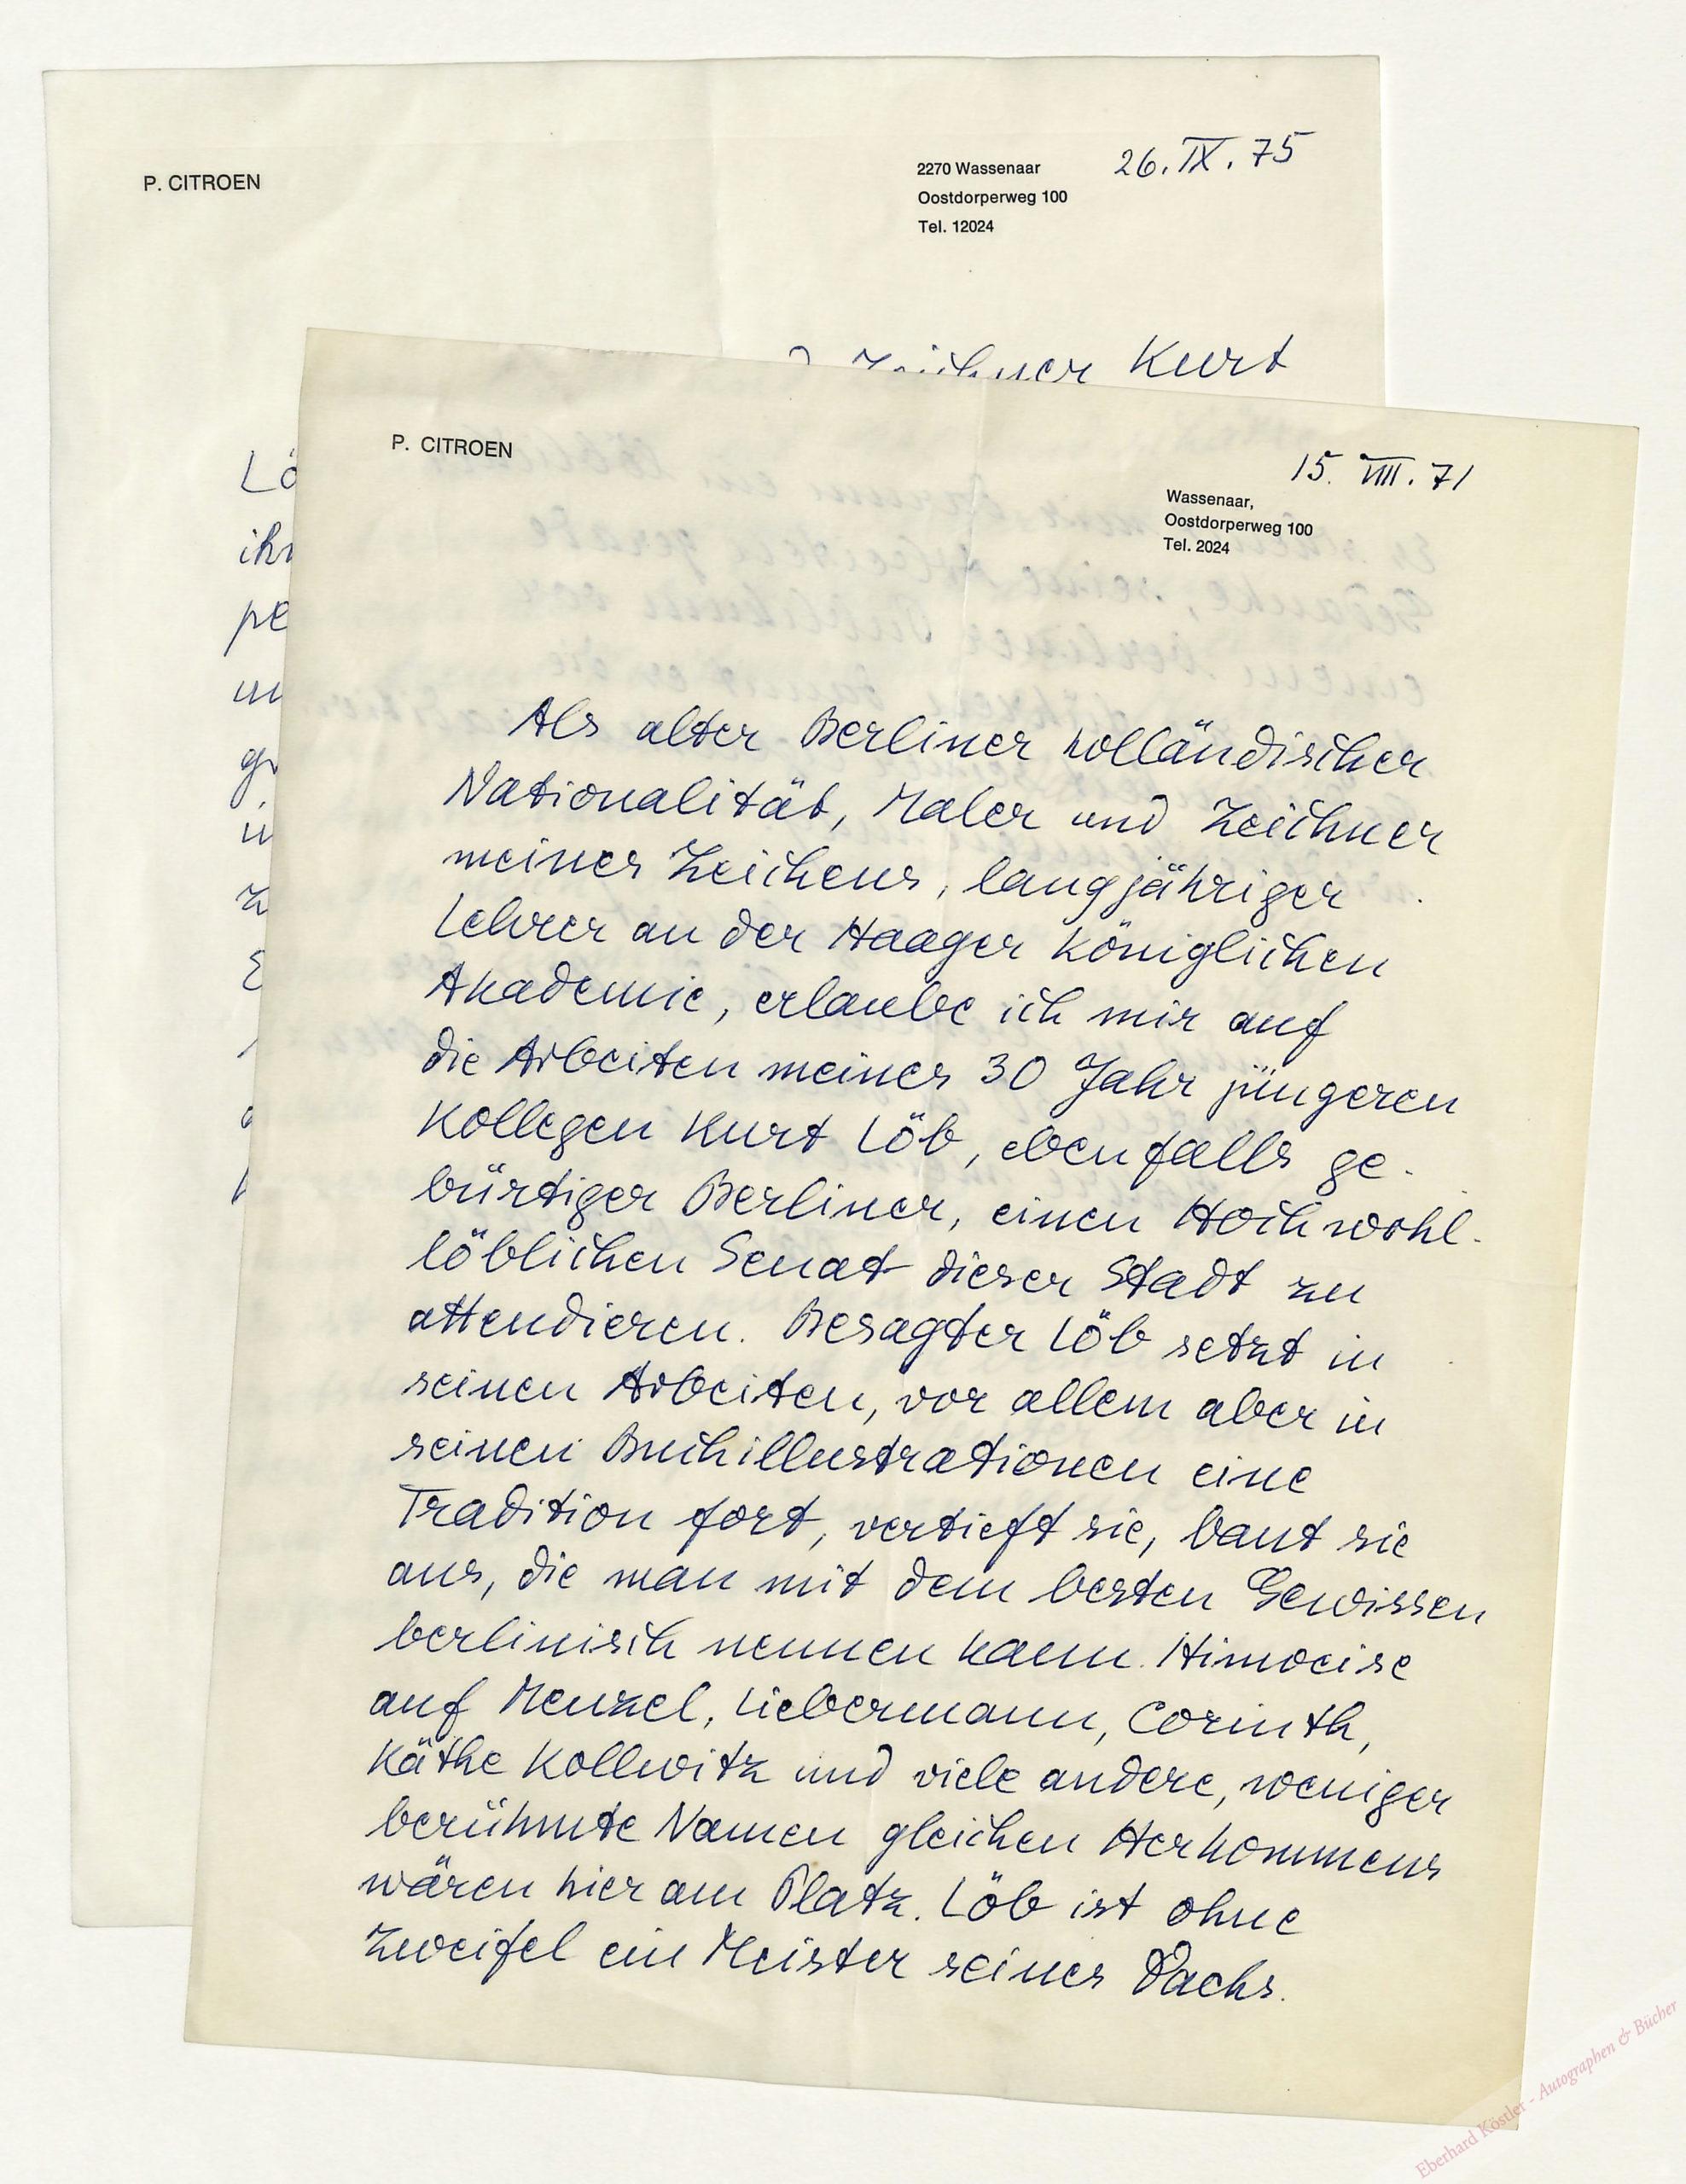 P. CITROEN
2270 Wassenaar
Oostdorperweg 100
Tel. 12024
26. IX. 75
Zeichner Kurt
P. CITROEN
15. VIII. 71
Wassenaar,
Oostdorperweg 100
Tel. 2024
Als alter Berliner holländischer
Nationalität, Maler und Zeichner
meines Zeichens, langjähriger
Lehrer an der Haager Königlichen
Akademie, erlaube ich mir auf
die Arbeiten meines 30 Jahr jüngeren
Kollegen Kurt Löb, ebenfalls ge-
bürtiger Berliner, einen Hochwohl-
löblichen Senat dieser Stadt zu
attendieren. Besagter Löb setzt in
seinen Arbeiten, vor allem aber in
seinen Buchillustrationen eine
Tradition fort, vertieft sie, baut sie
aus, die man mit dem besten Gewissen
berlinisch nennen kann. Hinweise
auf Menzel, Liebermann, Corinth,
Käthe Kollwitz und viele andere, weniger
berühmte Namen gleichen Herkommens
wären hier am Platz. Löb ist ohne
Zweifel ein Meister seines Fachs.
Eberhard Köstler - Autographen & Bücher